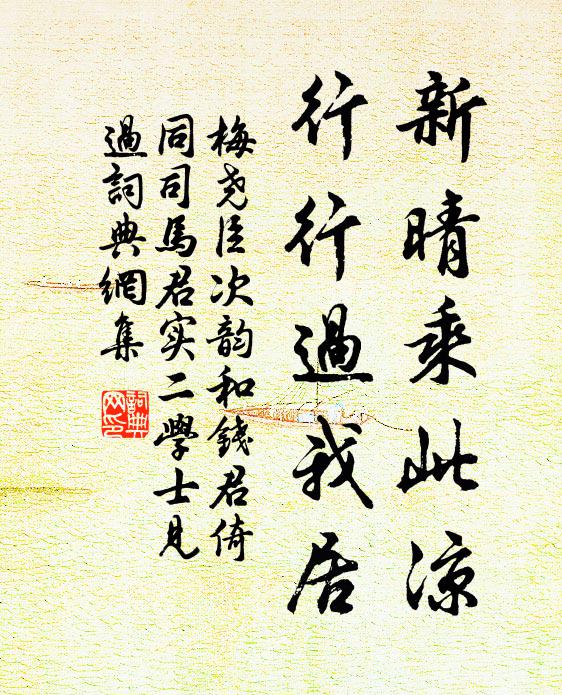 新晴乘此凉
行行過我居
梅尧臣次韵和錢君倚
同司馬君实二學士見
過詞典網集
詞典
网印